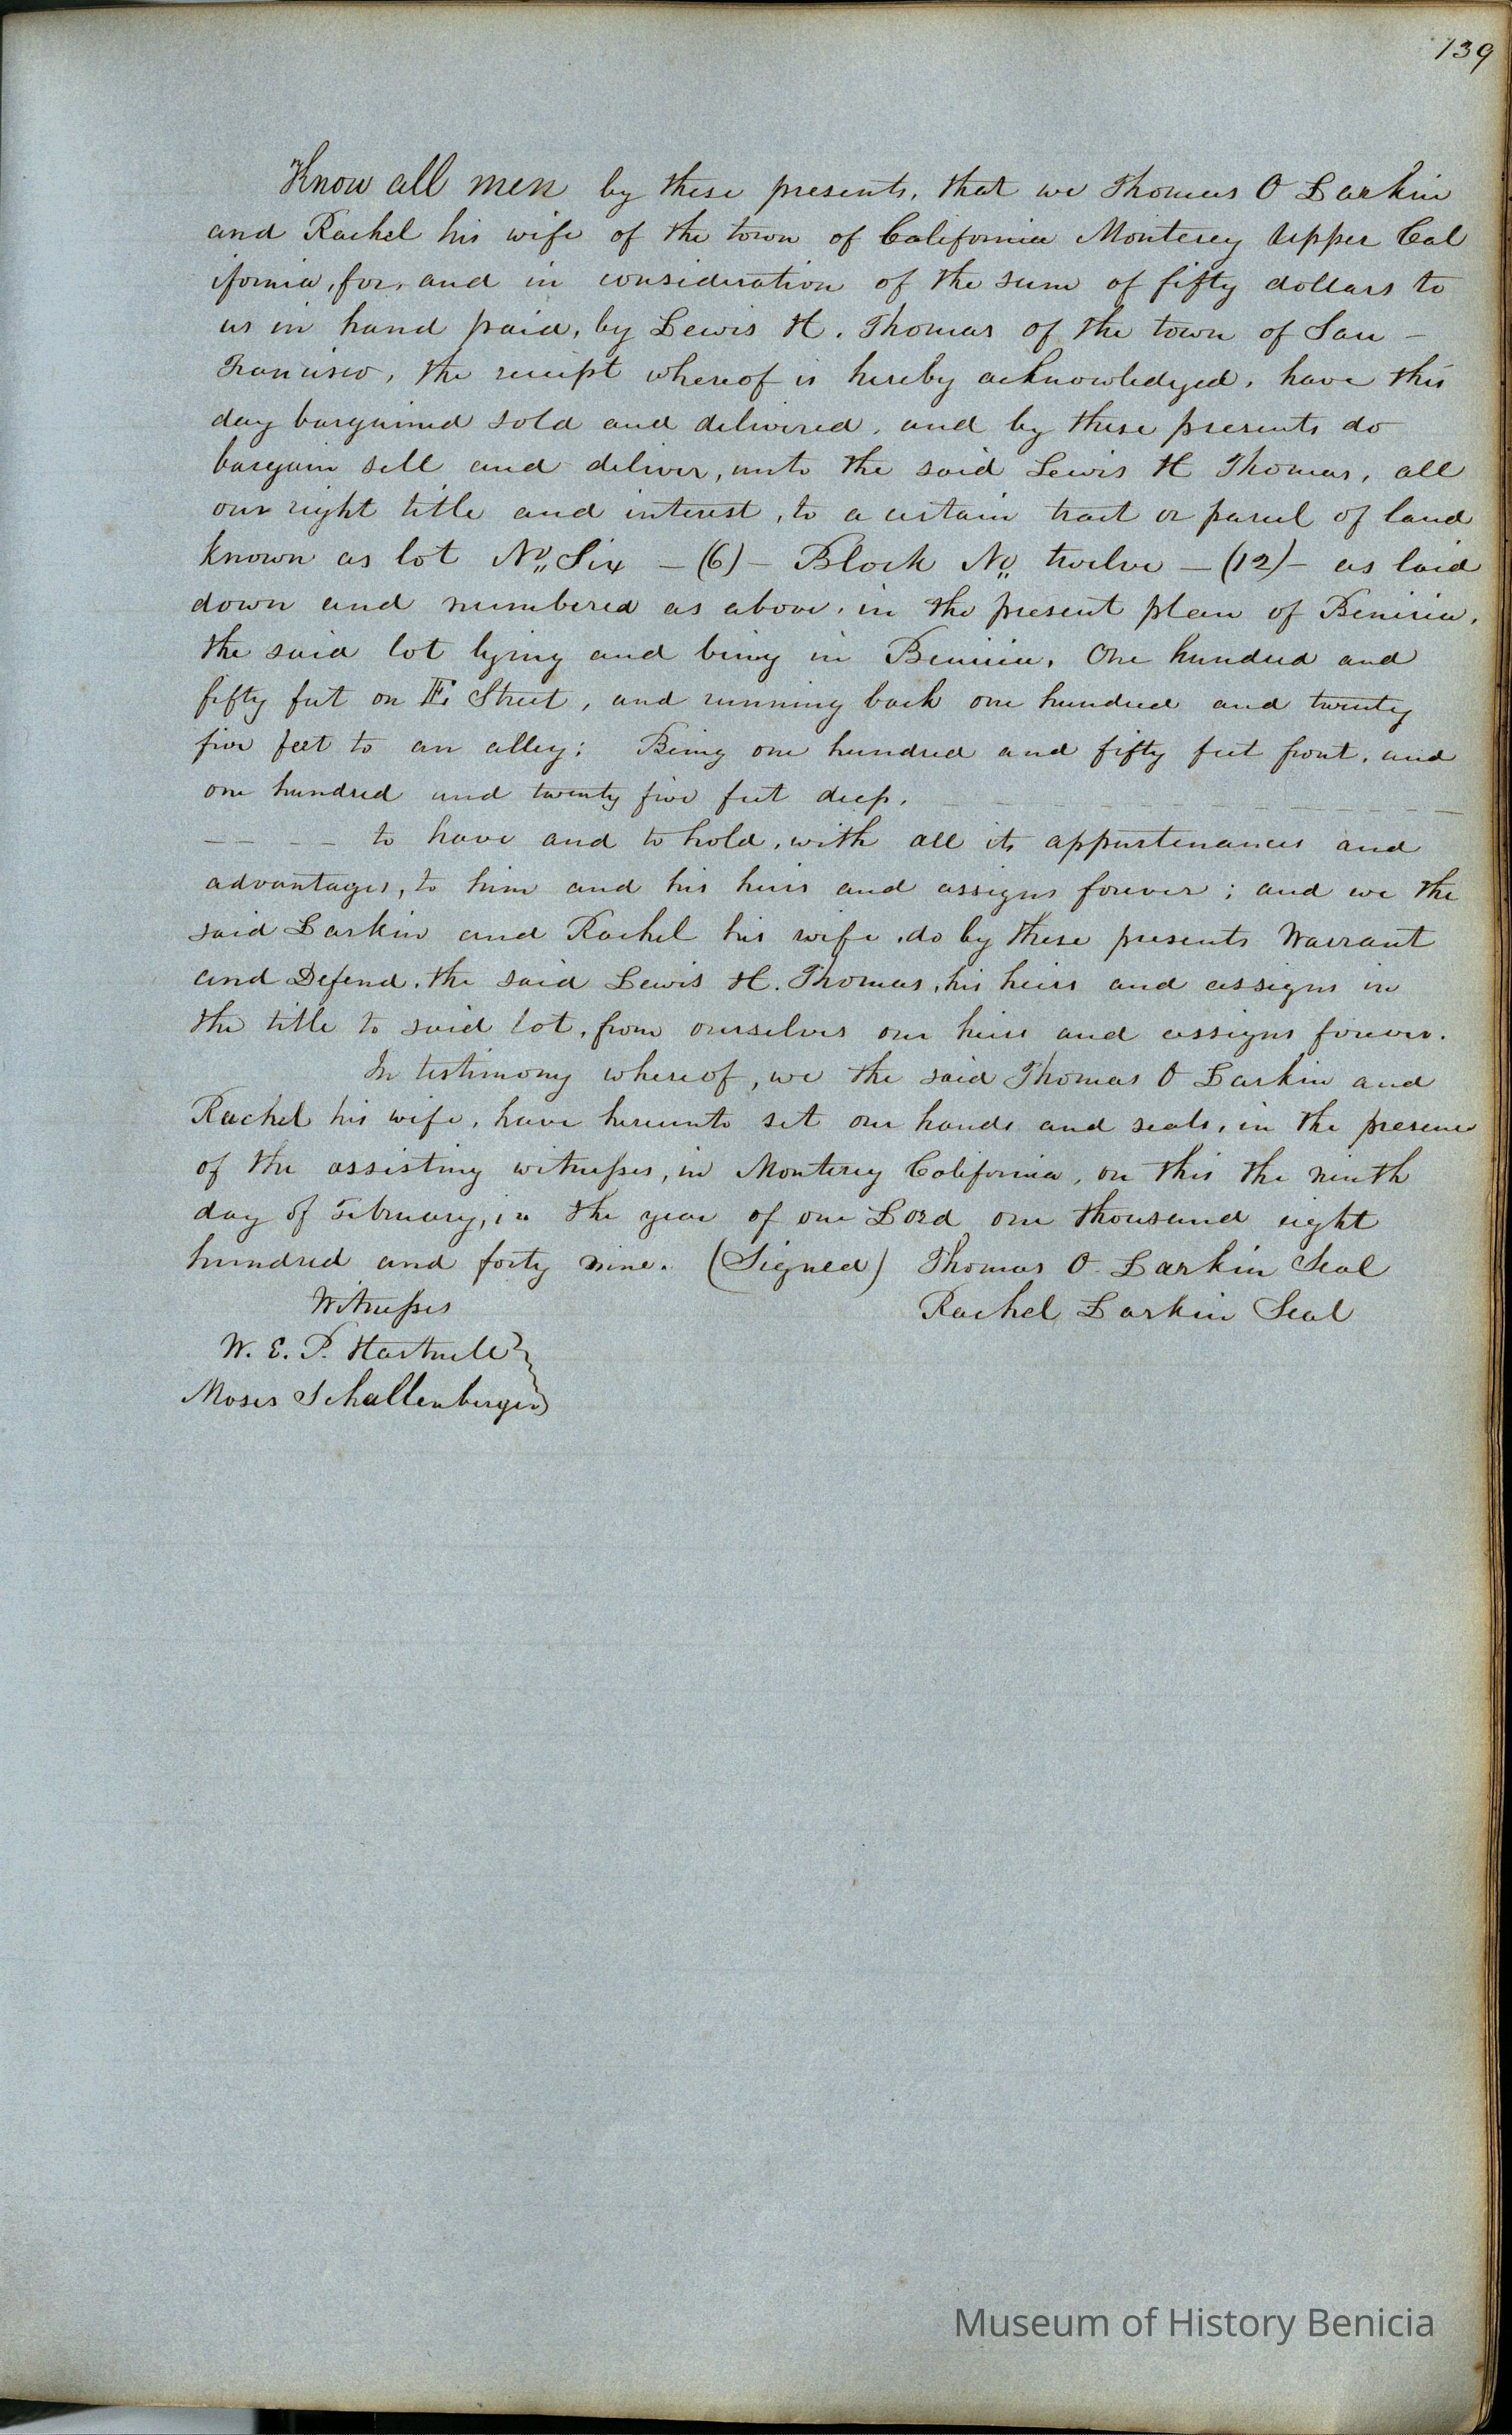 139
Know all men by these presents, that we Thomas O Larkin
and Rachel his wife of the town of California Monterey Upper Cal
ifornia, for, and in consideration of the sum of fifty dollars to
us in hand paid, by Lewis H. Thomas of the town of San –
Francisco, the receipt whereof is hereby acknowledged, have this
day bargained sold and delivered, and by these presents do
bargain sell and deliver, unto the said Lewis H Thomas, all
our right title and interest, to a certain tract or parcel of land
known as lot No. Six – (6) – Block No. twelve – (12) – as laid
down and numbered as above, in the present plan of Benicia,
the said lot lying and being in Benicia, One hundred and
fifty feet on E. Street, and running back one hundred and twenty
five feet to an alley: Being one hundred and fifty feet front, and
one hundred and twenty five feet deep. – – – – – – – – –
– – – to have and to hold, with all its appurtenances and
advantages, to him and his heirs and assigns forever; and we the
said Larkin and Rachel his wife, do by these presents Warrant
and Defend, the said Lewis H. Thomas, his heirs and assigns in
the title to said lot, from ourselves our heirs and assigns forever.
In testimony whereof, we the said Thomas O Larkin and
Rachel his wife, have hereunto set our hands and seals, in the presence
of the assisting witnesses, in Monterey California, on this the ninth
day of February, in the year of our Lord one thousand eight
hundred and forty nine. (Signed) Thomas O. Larkin Seal
Witnesses Rachel Larkin Seal
W. E. P. Hartnell
Moses Schallenberger
Museum of History Benicia